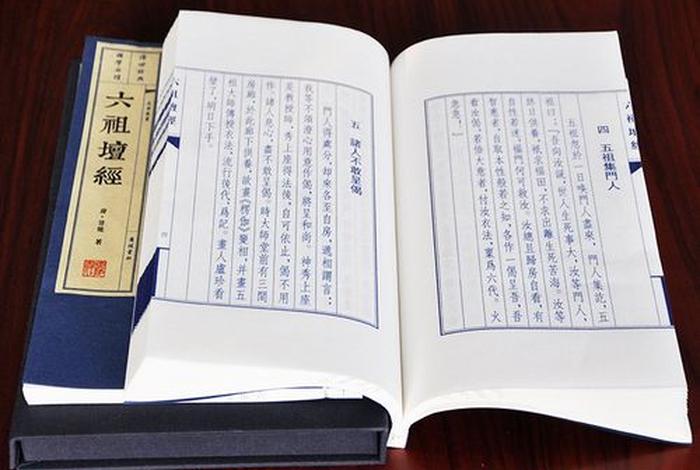 六祖壇經
唐·慧能 著
六祖壇經
四 五祖集門人
五祖忽於一日喚門人盡來，門人集訖，五
祖曰：『吾向汝説，世人生死事大，汝等門人，
終日供養，祇求福田，不求出離生死苦海。汝等
自性若迷，福門何可救汝。汝總且歸房自看，有
智惠者，自取本性般若之知，各作一偈呈吾，吾
看汝偈，若悟大意者，付汝衣法，稟爲六代。火
急急。』
五 諸人不敢呈偈
門人得處分，却來各至自房，遞相謂言：
我等不須澄心用意作偈，將呈和尚。神秀上座
是教授師，秀上座得法後，自可依止，偈不用
作。諸人息心，盡不敢呈偈。時大師堂前有三間
房廊，於此廊下供養，欲畫《楞伽》變相，并畫五
祖大師傳授衣法，流行後代，爲記。畫人盧珍看
壁了，明日下手。
六祖壇經
四